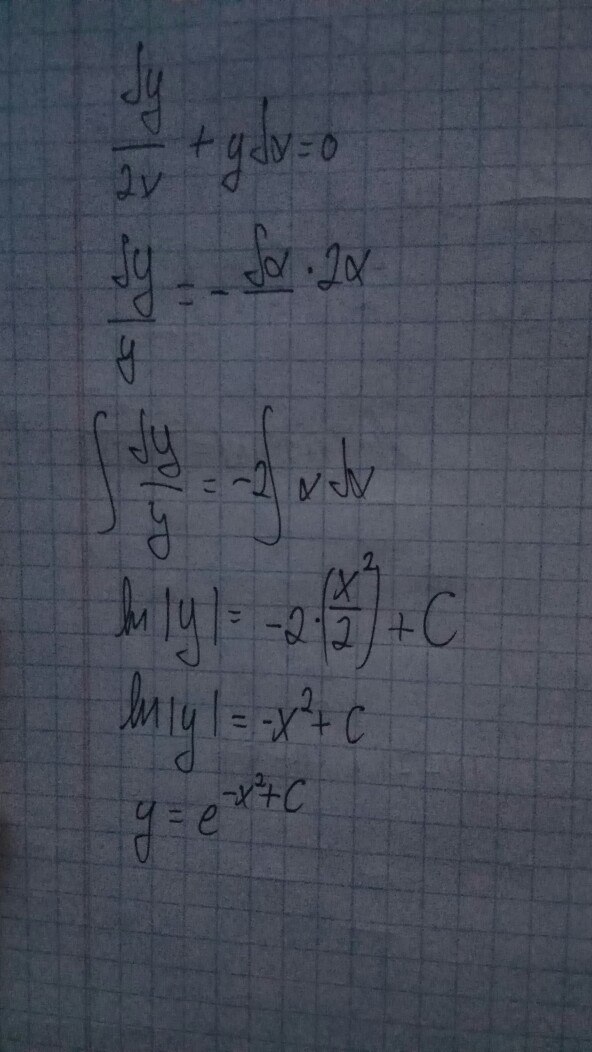 dy/2x + ydx = 0
dy/y = - dx · 2x
∫ dy/y = -2∫ x dx
ln|y| = -2·(x²/2) + C
ln|y| = -x² + C
y = e^(-x²+C)